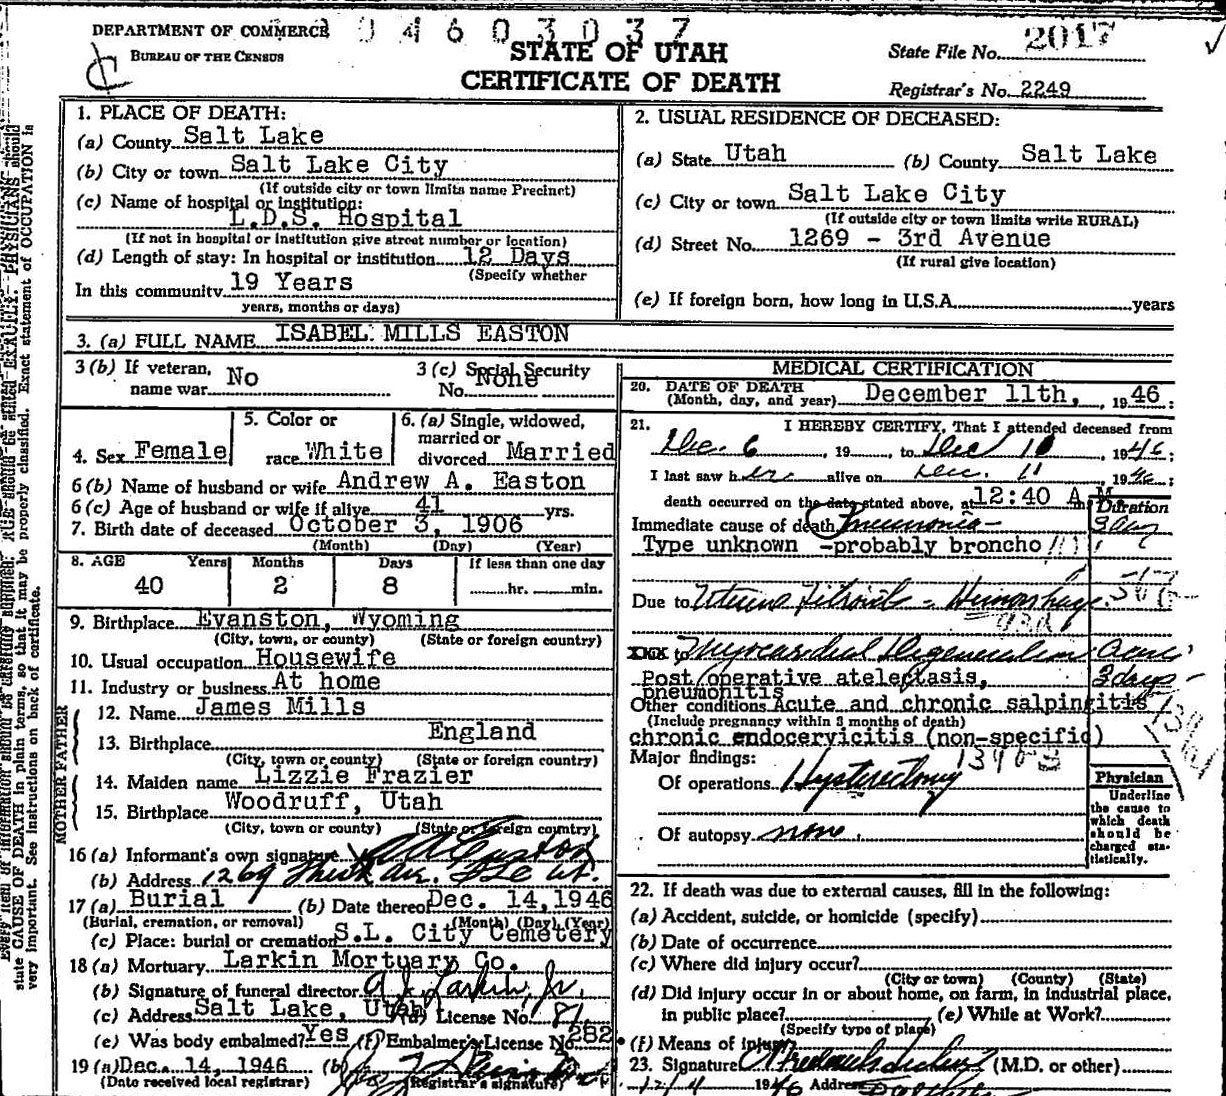 DEPARTMENT OF COMMERCE
BUREAU OF THE CENSUS
46 03037
STATE OF UTAH
CERTIFICATE OF DEATH
State File No. 2017
Registrar's No. 2249
1. PLACE OF DEATH:
(a) County Salt Lake
(b) City or town Salt Lake City
(If outside city or town limits name Precinct)
(c) Name of hospital or institution:
L.D.S. Hospital
(If not in hospital or institution give street number or location)
(d) Length of stay: In hospital or institution 12 Days
(Specify whether
In this community 19 Years
years, months or days)
2. USUAL RESIDENCE OF DECEASED:
(a) State Utah (b) County Salt Lake
(c) City or town Salt Lake City
(If outside city or town limits write RURAL)
(d) Street No. 1269 - 3rd Avenue
(If rural give location)
(e) If foreign born, how long in U.S.A. years
3. (a) FULL NAME ISABEL MILLS EASTON
3 (b) If veteran, name war No
3 (c) Social Security No. None
4. Sex Female
5. Color or race White
6. (a) Single, widowed, married or divorced Married
6 (b) Name of husband or wife Andrew A. Easton
6 (c) Age of husband or wife if alive 41 yrs.
7. Birth date of deceased October 3, 1906
(Month) (Day) (Year)
8. AGE Years Months Days If less than one day
40 2 8 hr. min.
9. Birthplace Evanston, Wyoming
(City, town, or county) (State or foreign country)
10. Usual occupation Housewife
11. Industry or business At home
FATHER
12. Name James Mills
13. Birthplace England
(City, town or county) (State or foreign country)
MOTHER
14. Maiden name Lizzie Frazier
15. Birthplace Woodruff, Utah
(City, town or county) (State or foreign country)
16 (a) Informant's own signature A A Easton
(b) Address 1269 Third Ave. SLC Ut.
17 (a) Burial (b) Date thereof Dec. 14, 1946
(Burial, cremation, or removal) (Month) (Day) (Year)
(c) Place: burial or cremation S.L. City Cemetery
18 (a) Mortuary Larkin Mortuary Co.
(b) Signature of funeral director A J Larkin, Jr.
(c) Address Salt Lake, Utah (d) License No. 87
(e) Was body embalmed? Yes (f) Embalmer's License No. 282
19 (a) Dec. 14, 1946 (b)
(Date received local registrar) (Registrar's signature)
MEDICAL CERTIFICATION
20. DATE OF DEATH
(Month, day, and year) December 11th, 1946
21. I HEREBY CERTIFY, That I attended deceased from
Dec. 6, 19 , to Dec 10 1946
I last saw her alive on Dec. 11 1946
death occurred on the date stated above, at 12:40 A M
Duration
Immediate cause of death Pneumonia -
Type unknown -probably broncho
Due to Uterine Fibroids - Hemorrhage
XXX to Myocardial Degeneration
Post operative atelectasis, 3 days -
pneumonitis
Other conditions Acute and chronic salpingitis
(Include pregnancy within 3 months of death)
chronic endocervicitis (non-specific)
Major findings:
Of operations Hysterectomy
Of autopsy none
Physician
Underline
the cause to
which death
should be
charged sta-
tistically.
22. If death was due to external causes, fill in the following:
(a) Accident, suicide, or homicide (specify)
(b) Date of occurrence
(c) Where did injury occur?
(City or town) (County) (State)
(d) Did injury occur in or about home, on farm, in industrial place,
in public place? (e) While at Work?
(Specify type of place)
(f) Means of injury
23. Signature (M.D. or other)
1946 Address
state CAUSE OF DEATH in plain terms, so that it may be properly classified. Exact statement of OCCUPATION is
very important. See instructions on back of certificate.